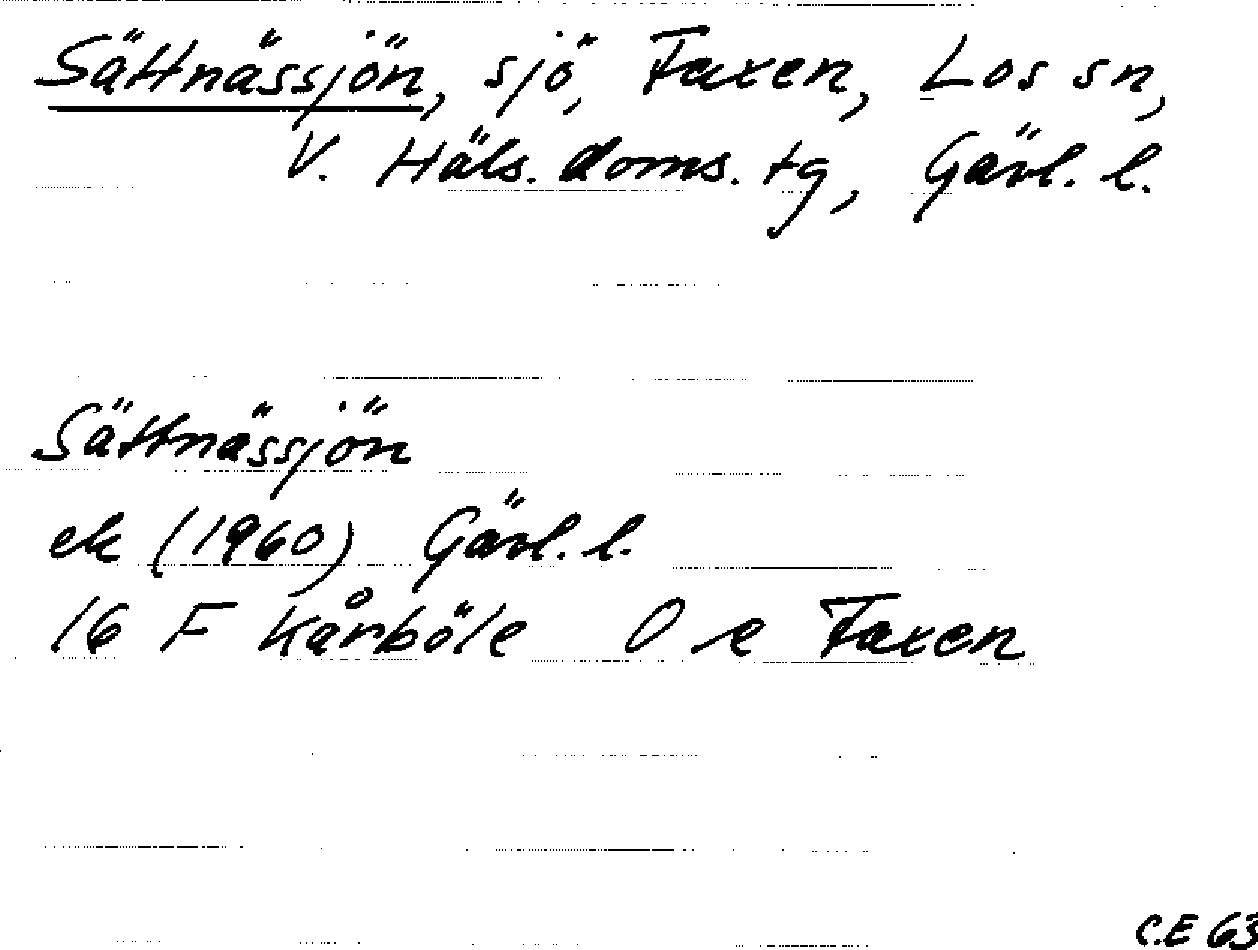 Sättnässjön, sjö, Faxen, Los sn,
V. Häls. doms. tg, Gävl. l.
Sättnässjön
ek (1960) Gävl. l.
16 F Kårböle O e Faxen
C.E 63